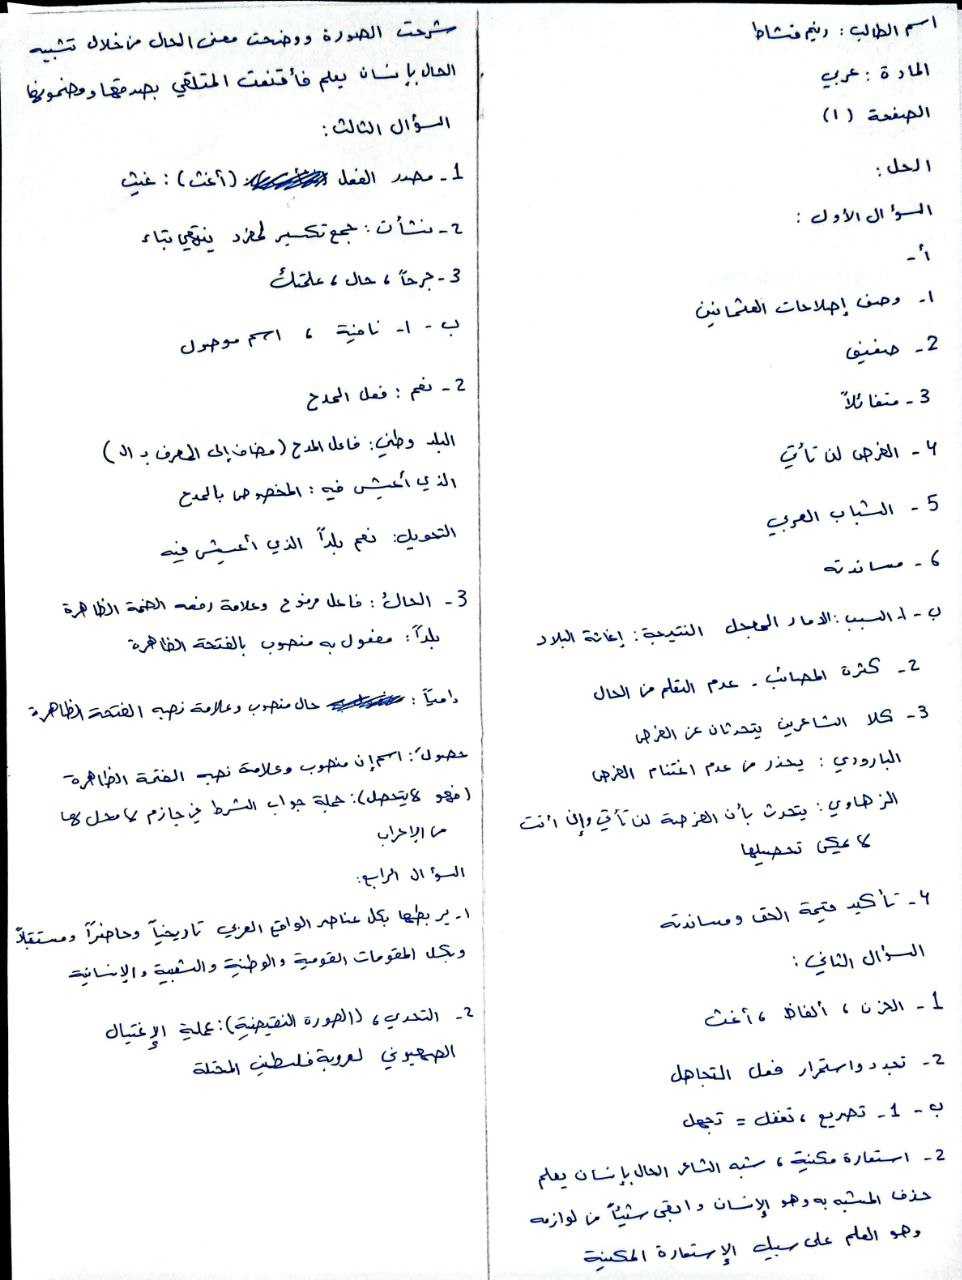 اسم الطالب: رنيم قشاط
المادة: عربي
الصفحة (١)
الحل:
السؤال الأول:
أ-
١- وصف إصلاحات العثمانيين
2- صفيق
3- متفائلاً
٤- الفرص لن تأتي
5- الشباب العربي
٦- مساندته
ب- ١- السبب: الدمار المعجل النتيجة: إغاثة البلاد
2- كثرة المصائب - عدم التعلم من الحال
3- كلا الشاعرين يتحدثان عن الفرص
البارودي: يحذر من عدم اغتنام الفرص
الزهاوي: يتحدث بأن الفرصة لن تأتي وإن أتت
لا يمكن تحصيلها
٤- تأكيد قيمة الحق ومساندته
السؤال الثاني:
1- الحزن، ألفاظ، أغث
2- تجدد واستمرار فعل التجاهل
ب- 1- تصريع، تغفل = تجهل
2- استعارة مكنية، شبه الشاعر الحال بإنسان يعلم
حذف المشبه به وهو الإنسان وابقى شيئاً من لوازمه
وهو العلم على سبيل الإستعارة المكنية
شرحت الصورة ووضحت معنى الحال من خلال تشبيه
الحال بإنسان يعلم فأقنعت المتلقي بصدقها ومضمونها
السؤال الثالث:
1- مصدر الفعل (أغث): غيث
2- نشأت: جمع تكسير لمفرد ينتهي بتاء
3- جرحاً، حال، علمتك
ب- ١- نافية، اسم موصول
2- نعم: فعل المدح
البلد وطني: فاعل المدح (مضاف إلى المعرف بـ ال)
الذي أعيش فيه: المخصوص بالمدح
التحويل: نعم بلداً الذي أعيش فيه
3- الحالُ: فاعل مرفوع وعلامة رفعه الضمة الظاهرة
بلداً: مفعول به منصوب بالفتحة الظاهرة
دامياً: حال منصوب وعلامة نصبه الفتحة الظاهرة
حصولَ: اسم إن منصوب وعلامة نصبه الفتحة الظاهرة
(فهو لا يتحصل): جملة جواب الشرط في جازم لا محل لها
من الإعراب
السؤال الرابع:
١- يربطها بكل عناصر الواقع العربي تاريخياً وحاضراً ومستقبلاً
وبكل المقومات القومية والوطنية والشعبية والإنسانية
2- التحدي، (الصورة النقيضة): عملية الإغتيال
الصهيوني لعروبة فلسطين المحتلة